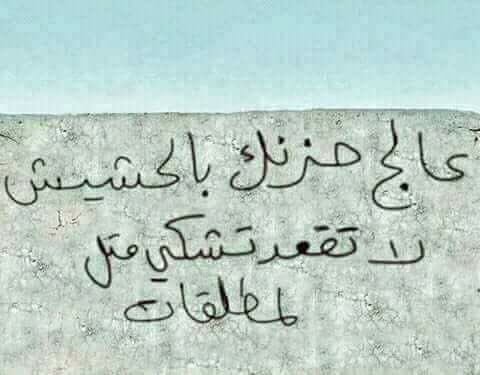 عالج حزنك بالحشيش
لا تقعد تشكي متل
لمطلقات